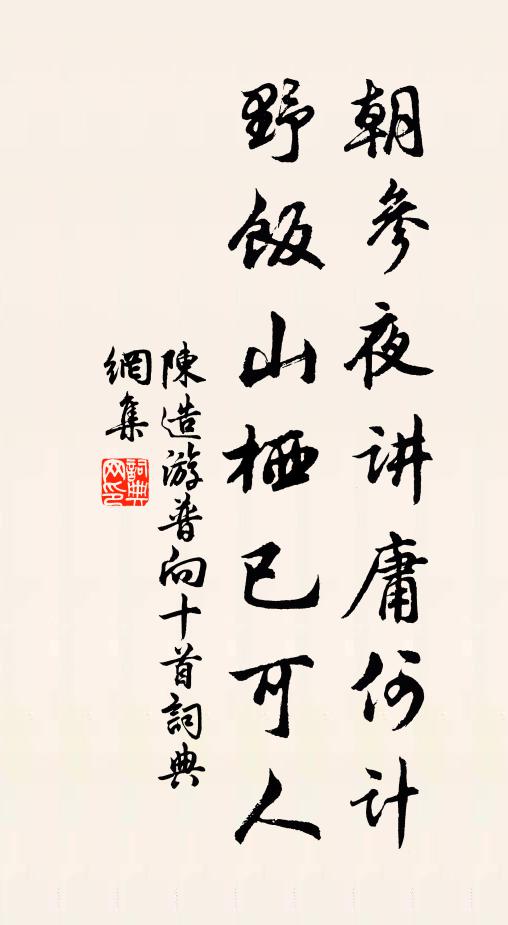 朝參夜讲庸何计
野飯山栖已可人
陳造游普向十首詞典
網集
詞典
网印